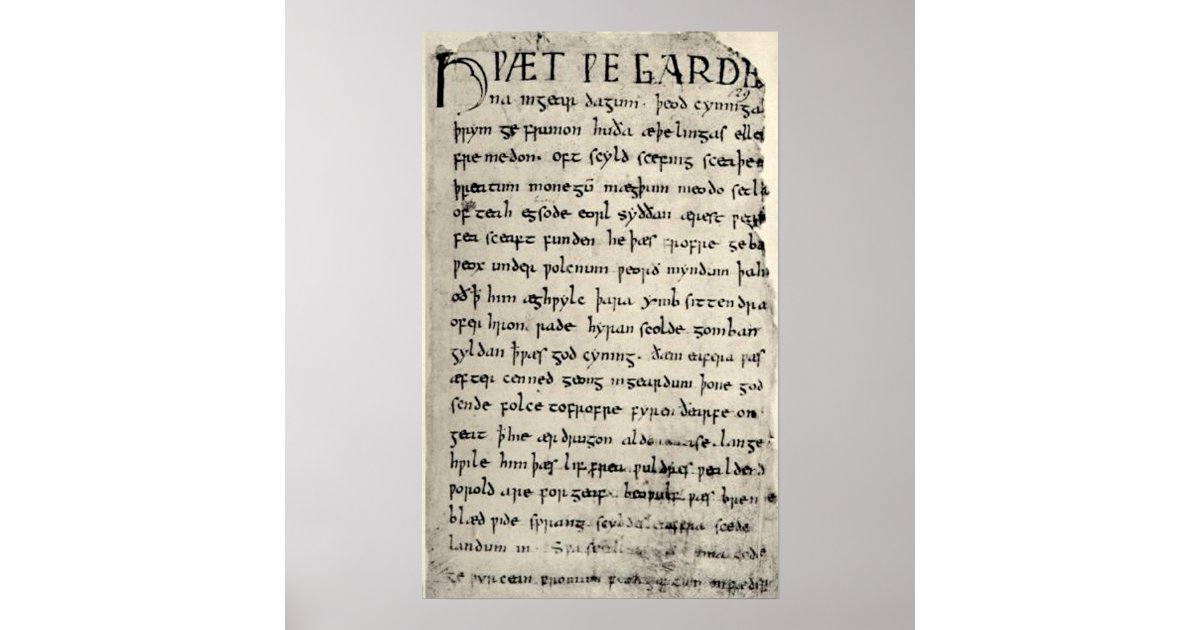 HǷÆT ǷE GARDE
na ingear dagum. þeod cyninga
þrym ge frunon huða æþelingas elle
fre medon. oft scyld scefing sceaþe
þreatum monegū mægþum meodo setla
of teah egsode eorl syððan ærest
fea sceaft funden he þæs frofre geba
ƿeox under ƿolcnum ƿeorð myndum þah
oð ꝥ him æghƿylc þara ymb sittendra
ofer hron rade hyran scolde gomban
gyldan ꝥ ƿæs god cyning. ðæm eafera ƿæs
æfter cenned geong ingeardum þone god
sende folce tofrofre fyren ðearfe on
geat ꝥ hie ær drugon aldor ase. lange
hƿile him þæs lif frea ƿuldres ƿealdend
ƿorold are for geaf. beoƿulf ƿæs breme
blæd ƿide sprang scyldes eafera scede
landum in. Sƿa sceal ma gode
ge ƿyrcean fromum